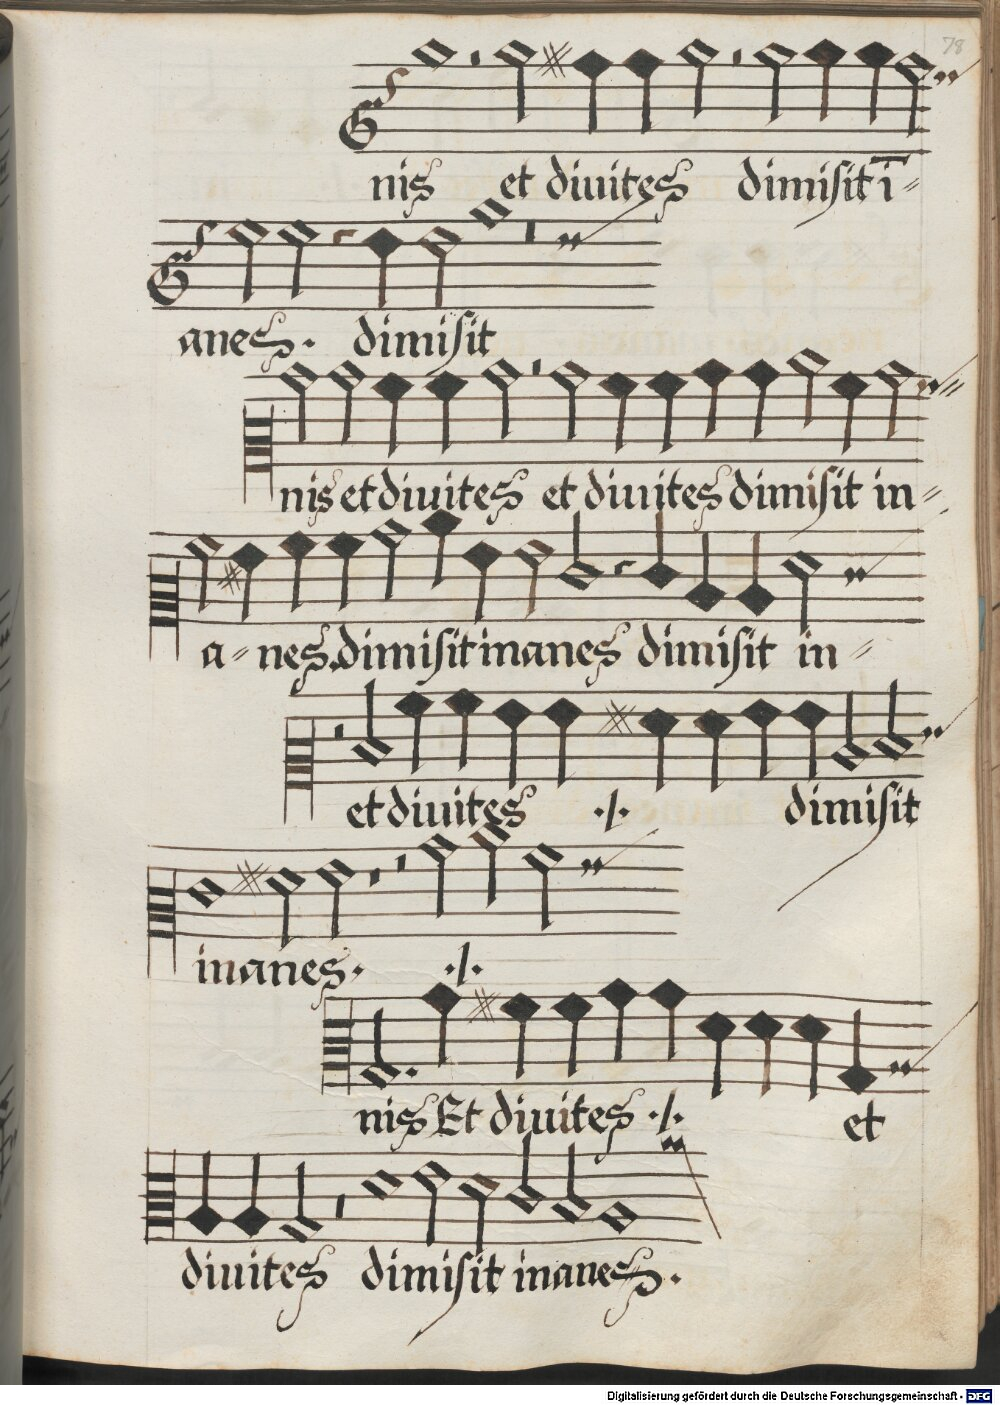 78
nis et diuites dimisit ī=
anes. dimisit
nis et diuites et diuites dimisit in=
a=nes. dimisit inanes dimisit in=
et diuites ./. dimisit
inanes. ./.
nis Et diuites ./. et
diuites dimisit inanes.
Digitalisierung gefördert durch die Deutsche Forschungsgemeinschaft - DFG